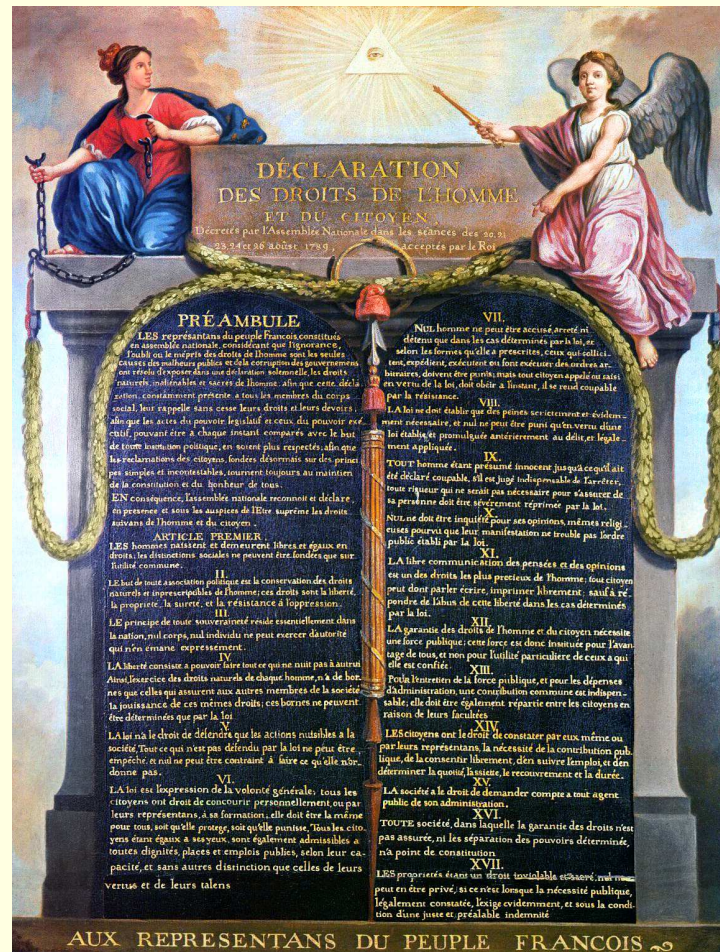 DÉCLARATION
DES DROITS DE L'HOMME
ET DU CITOYEN,
Décretés par l'Assemblée Nationale dans les séances des 20, 21
23, 24 et 26 août 1789, acceptés par le Roi
PRÉAMBULE
LES représantans du peuple Francois, constitués
en assemblée nationale, considérant que l'ignorance,
l'oubli ou le mépris des droits de l'homme sont les seules
causes des malheurs publics et de la corruption des gouvernemens
ont résolu d'exposer dans une déclaration solemnelle, les droits
naturels, inaliénables et sacrés de l'homme; afin que cette décla
ration, constamment présente a tous les membres du corps
social, leur rappelle sans cesse leurs droits et leurs devoirs;
afin que les actes du pouvoir legislatif et ceux du pouvoir exé-
cutif, pouvant être a chaque instant comparés avec le but
de toute institution politique, en soient plus respectés; afin que
les reclamations des citoyens, fondées désormais sur des princi
pes simples et incontestables, tournent toujours au maintien
de la constitution et du bonheur de tous.
EN conséquence, l'assemblée nationale reconnoit et déclare,
en presence et sous les auspices de l'Etre suprême les droits
suivans de l'homme et du citoyen.
ARTICLE PREMIER.
LES hommes naissent et demeurent libres et égaux en
droits; les distinctions sociales ne peuvent être fondées que sur
l'utilité commune.
II.
LE but de toute association politique est la conservation des droits
naturels et inprescriptibles de l'homme; ces droits sont la liberté,
la propriete, la sureté, et la résistance à l'oppression.
III.
LE principe de toute souveraineté réside essentiellement dans
la nation, nul corps, nul individu ne peut exercer d'autorité
qui n'en émane expressement.
IV.
LA liberté consiste a pouvoir faire tout ce qui ne nuit pas à autrui
Ainsi, l'exercice des droits naturels de chaque homme, n'a de bor-
nes que celles qui assurent aux autres membres de la société
la jouissance de ces mêmes droits; ces bornes ne peuvent
être déterminées que par la loi
V.
LA loi n'a le droit de défendre que les actions nuisibles à la
société, Tout ce qui n'est pas défendu par la loi ne peut être
empêché, et nul ne peut être contraint à faire ce qu'elle n'or-
donne pas.
VI.
LA loi est l'expression de la volonté générale; tous les
citoyens ont droit de concourir personnellement, ou par
leurs représentans, à sa formation; elle doit être la même
pour tous, soit qu'elle protege, soit qu'elle punisse, Tous les cito
yens étant égaux a ses yeux, sont également admissibles à
toutes dignités, places et emplois publics, selon leur ca-
pacité, et sans autres distinction que celles de leurs
vertus et de leurs talens
VII.
NUL homme ne peut être accusé, arreté, ni
détenu que dans les cas déterminés par la loi, et
selon les formes qu'elle a prescrites, ceux qui sollici-
tent, expédient, exécutent ou font exécuter des ordres ar-
bitraires, doivent être punis; mais tout citoyen appelé ou saisi
en vertu de la loi, doit obéir a l'instant, il se rend coupable
par la résistance.
VIII.
LA loi ne doit établir que des peines strictement et évidem-
ment nécessaire, et nul ne peut être puni qu'en vertu d'une
loi établie et promulguée antérierement au délit, et légale-
ment appliquée.
IX.
TOUT homme étant présumé innocent jusqu'à ce qu'il ait
été déclaré coupable, s'il est jugé indispensable de l'arrêter,
toute rigueur qui ne serait pas nécessaire pour s'assurer de
sa personne doit être sévèrement réprimée par la loi.
X.
NUL ne doit être inquiété pour ses opinions, mêmes religi
euses pourvu que leur manifestation ne trouble pas l'ordre
public établi par la loi.
XI.
LA libre communication des pensées et des opinions
est un des droits les plus precieux de l'homme; tout citoyen
peut dont parler écrire, imprimer librement; sauf à ré-
pondre de l'abus de cette liberté dans les cas déterminés
par la loi.
XII.
LA garantie des droits de l'homme et du citoyen nécessite
une force publique; cette force est donc instituée pour l'avan
tage de tous, et non pour l'utilité particuliere de ceux a qui
elle est confiée.
XIII.
Pour l'entretien de la force publique, et pour les dépenses
d'administration, une contribution commune est indispen-
sable; elle doit être également répartie entre les citoyens en
raison de leurs facultées
XIV.
LES citoyens ont le droit de constater par eux même ou
par leurs représentans, la nécessité de la contribution pub-
lique, de la consentir librement, d'en suivre l'emploi, et d'en
déterminer la quotité, l'assiette, le recouvrement et la durée.
XV.
LA société a le droit de demander compte a tout agent
public de son administration.
XVI.
TOUTE société, dans laquelle la garantie des droits n'est
pas assurée, ni les séparation des pouvoirs déterminée,
n'a point de constitution
XVII.
LES proprietés étant un droit inviolable et sacré, nul ne
peut en être privé, si ce n'est lorsque la nécessité publique,
légalement constatée, l'exige evidemment, et sous la condi-
tion d'une juste et préalable indemnité
AUX REPRESENTANS DU PEUPLE FRANCOIS